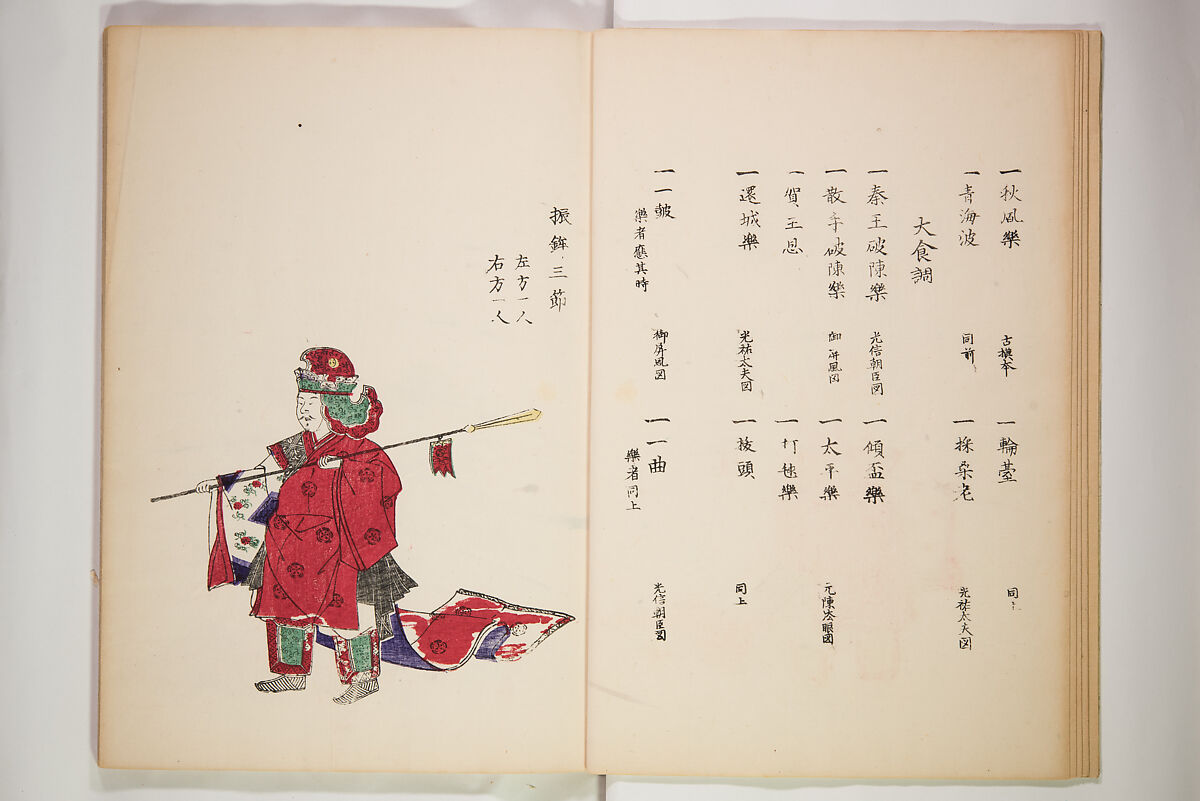 一秋風樂 古摸本 一輪臺 同上
一青海波 同前 一採桑老 光祐太夫図
大食調
一秦王破陳樂 光信朝臣図 一傾盃樂
一散手破陳樂 御屏風図 一太平樂 元陳法眼図
一賀王恩 一打毬樂
一還城樂 光祐太夫図 一拔頭 同上
一一皷 樂者應其時 御屏風図 一一曲 樂者同上 光信朝臣図
振鉾三節
左方一人
右方一人